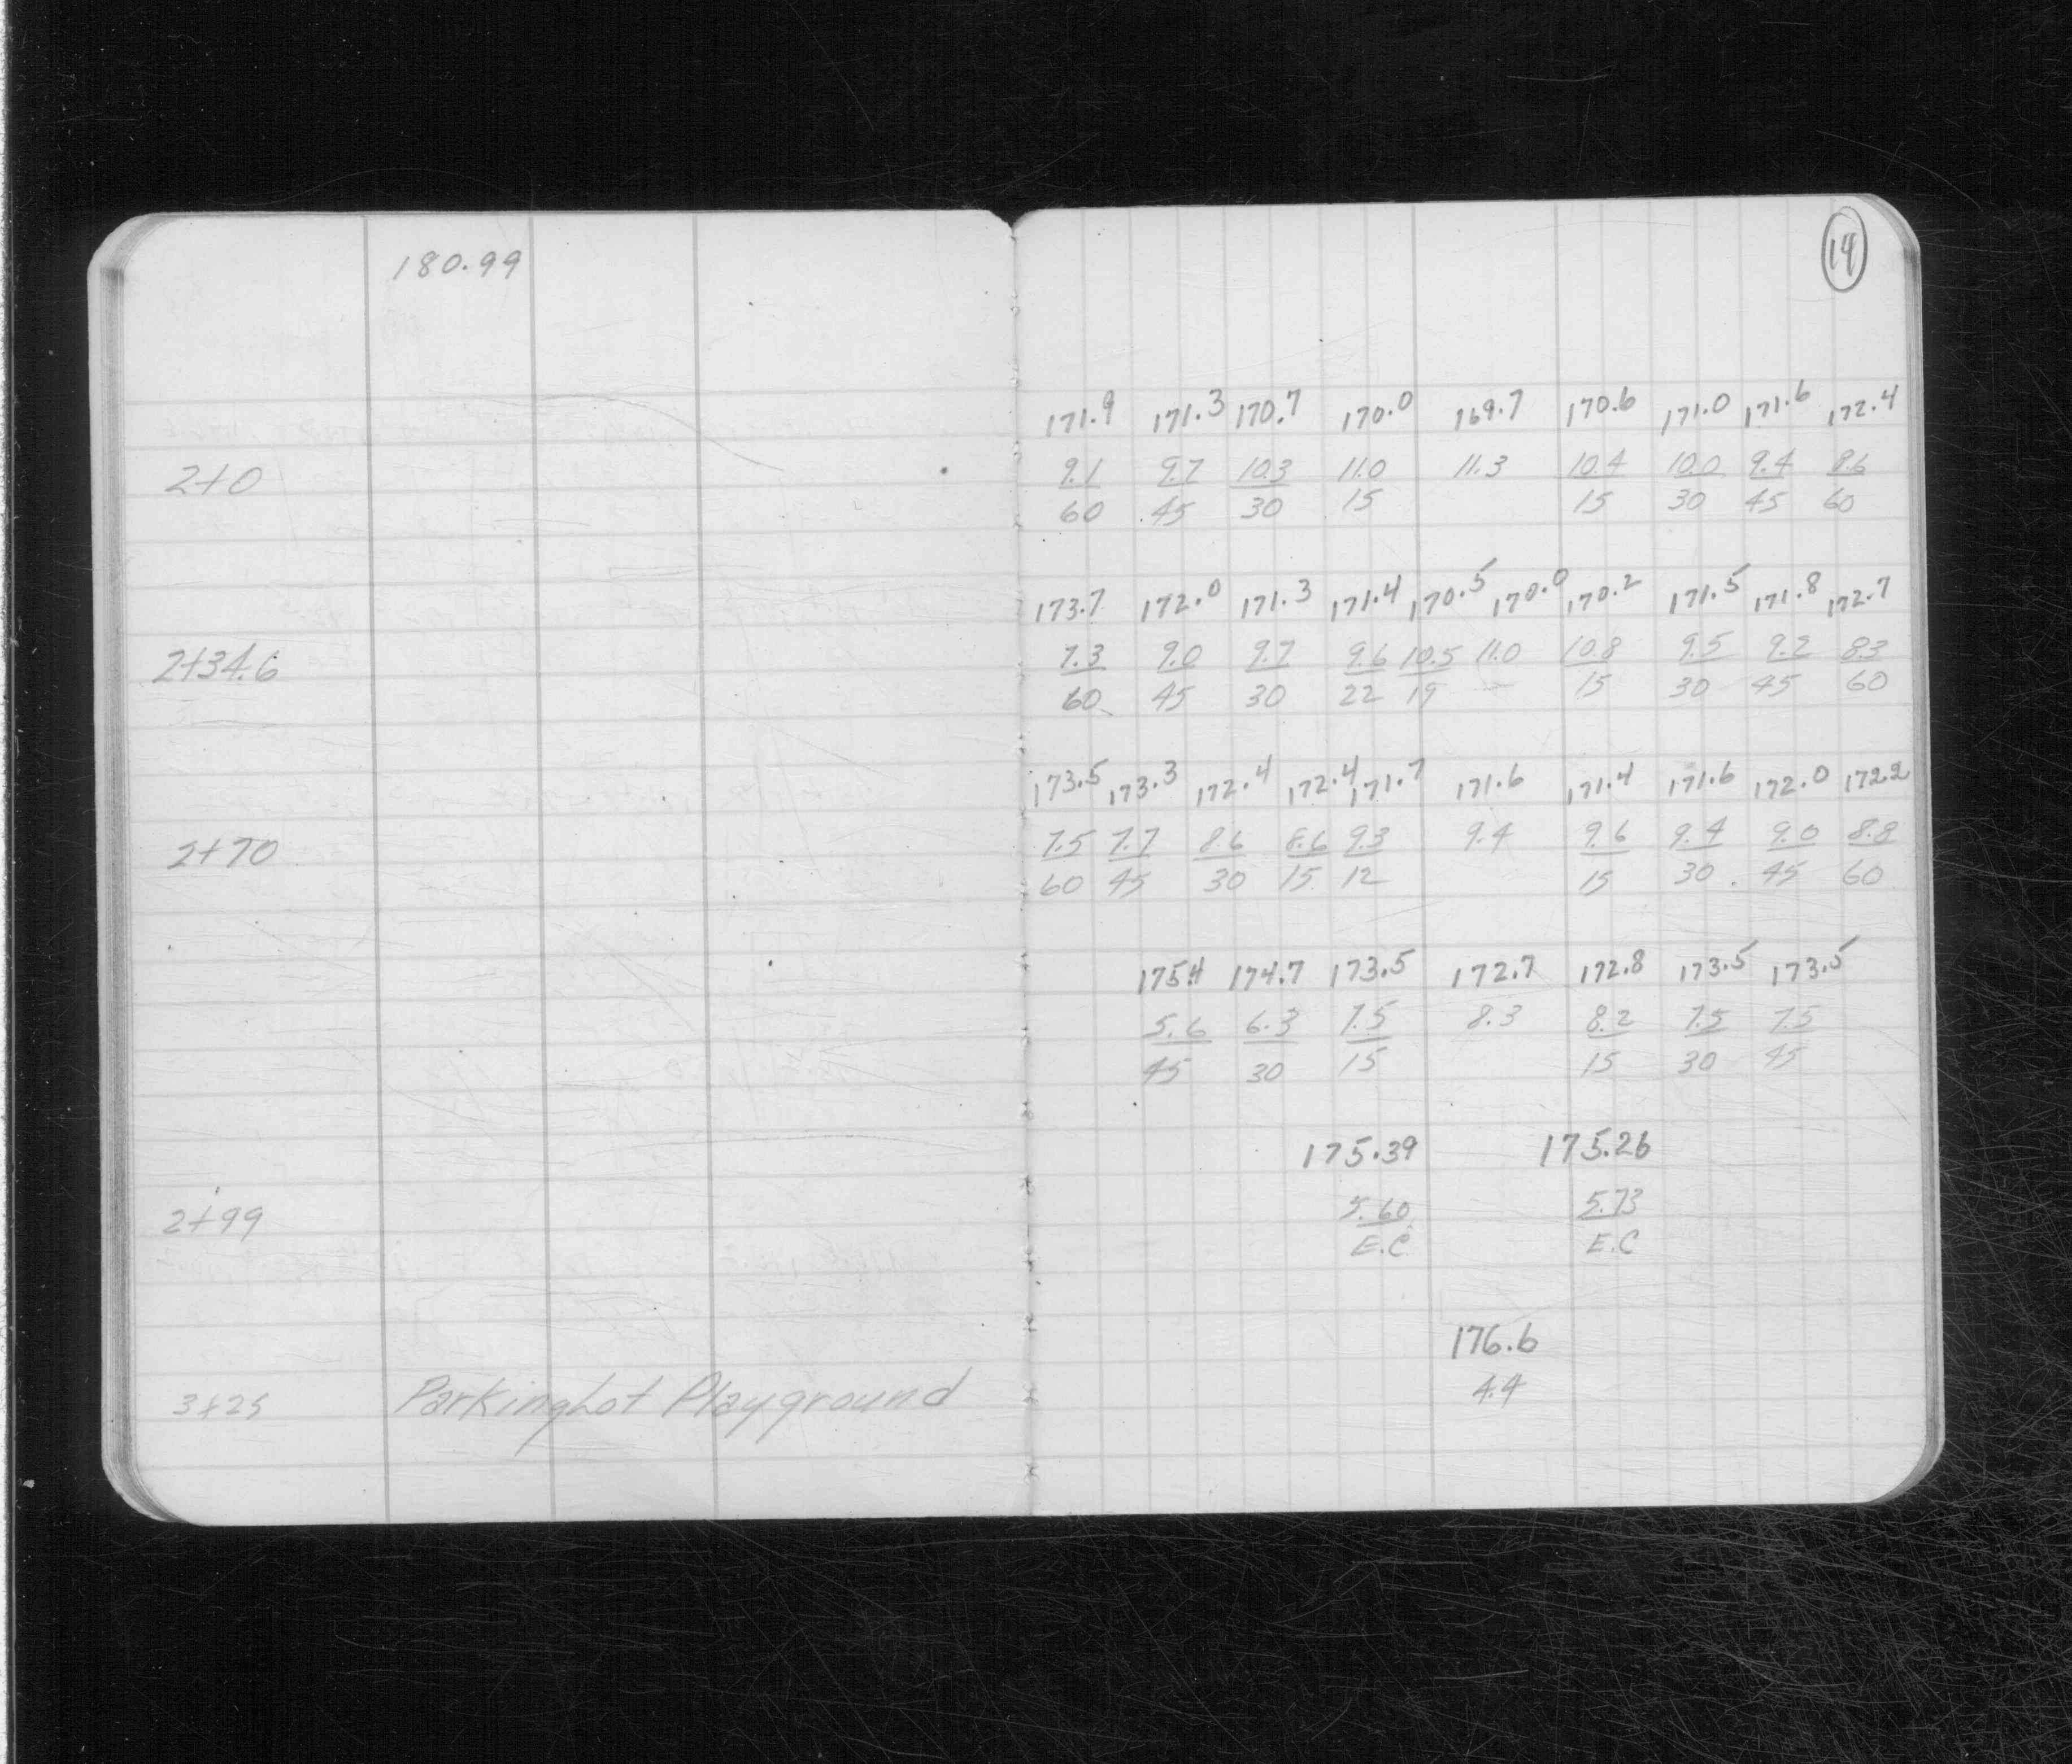 180.99
14
171.9 171.3 170.7 170.0 169.7 170.6 171.0 171.6 172.4
2+0 9.1 9.7 10.3 11.0 11.3 10.4 10.0 9.4 8.6
60 45 30 15 15 30 45 60
173.7 172.0 171.3 171.4 170.5 170.0 170.2 171.5 171.8 172.7
2+34.6 7.3 9.0 9.7 9.6 10.5 11.0 10.8 9.5 9.2 8.3
60 45 30 22 19 — 15 30 45 60
173.5 173.3 172.4 172.4 171.7 171.6 171.4 171.6 172.0 172.2
2+70 7.5 7.7 8.6 8.6 9.3 9.4 9.6 9.4 9.0 8.8
60 45 30 15 12 15 30 45 60
175.4 174.7 173.5 172.7 172.8 173.5 173.5
5.6 6.3 7.5 8.3 8.2 7.5 7.5
45 30 15 15 30 45
175.39 175.26
2+99 5.60 5.73
E.C E.C
176.6
3+25 Parking Lot Playground 4.4